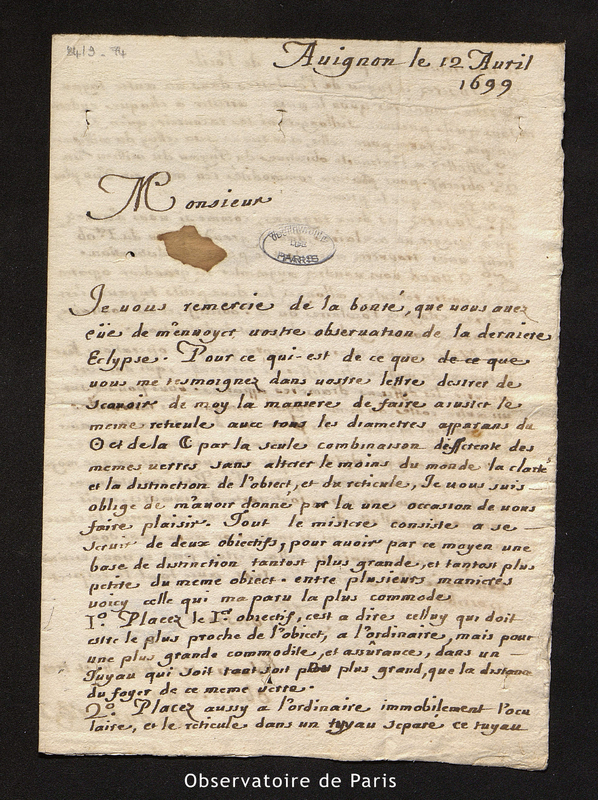 24/9-74
Auignon le 12 Auril
1699
Monsieur
OBSERVATOIRE
DE
PARIS
Je uous remercie de la bonté, que uous auez
eüe de m'enuoyer uostre observation de la derniere
Eclypse. Pour ce qui-est de ce que de ce que
uous me tesmoignez dans uostre lettre desirer de
scauoir de moy la maniere de faire aiuster le
meme reticule auec tous les diametres apparans du
☉ et de la ☾ par la seule combinaison differente des
memes uerres sans alterer le moins du monde la clarté
et la distinction de l'obiect, et du reticule, Je uous suis
obligé de m'auoir donné par la une occasion de uous
faire plaisir. Tout le mistere consiste a se
seruir de deux objectifs, pour auoir par ce moyen une
base de distinction tantost plus grande, et tantost plus
petite du meme object. entre plusieurs manieres
uoicy celle qui ma paru la plus commode
1º. Placez le 1er objectif, cest a dire celluy qui doit
estre le plus proche de l'obiect, a l'ordinaire, mais pour
une plus grande commodité, et assurance, dans un
Tuyau qui soit tant soit peu plus grand, que la distance
du foyer de ce meme uerre.
2º. Placez aussy a l'ordinaire immobilement l'ocu
laire, et le reticule dans un tuyau separé ce tuyau
Observatoire de Paris